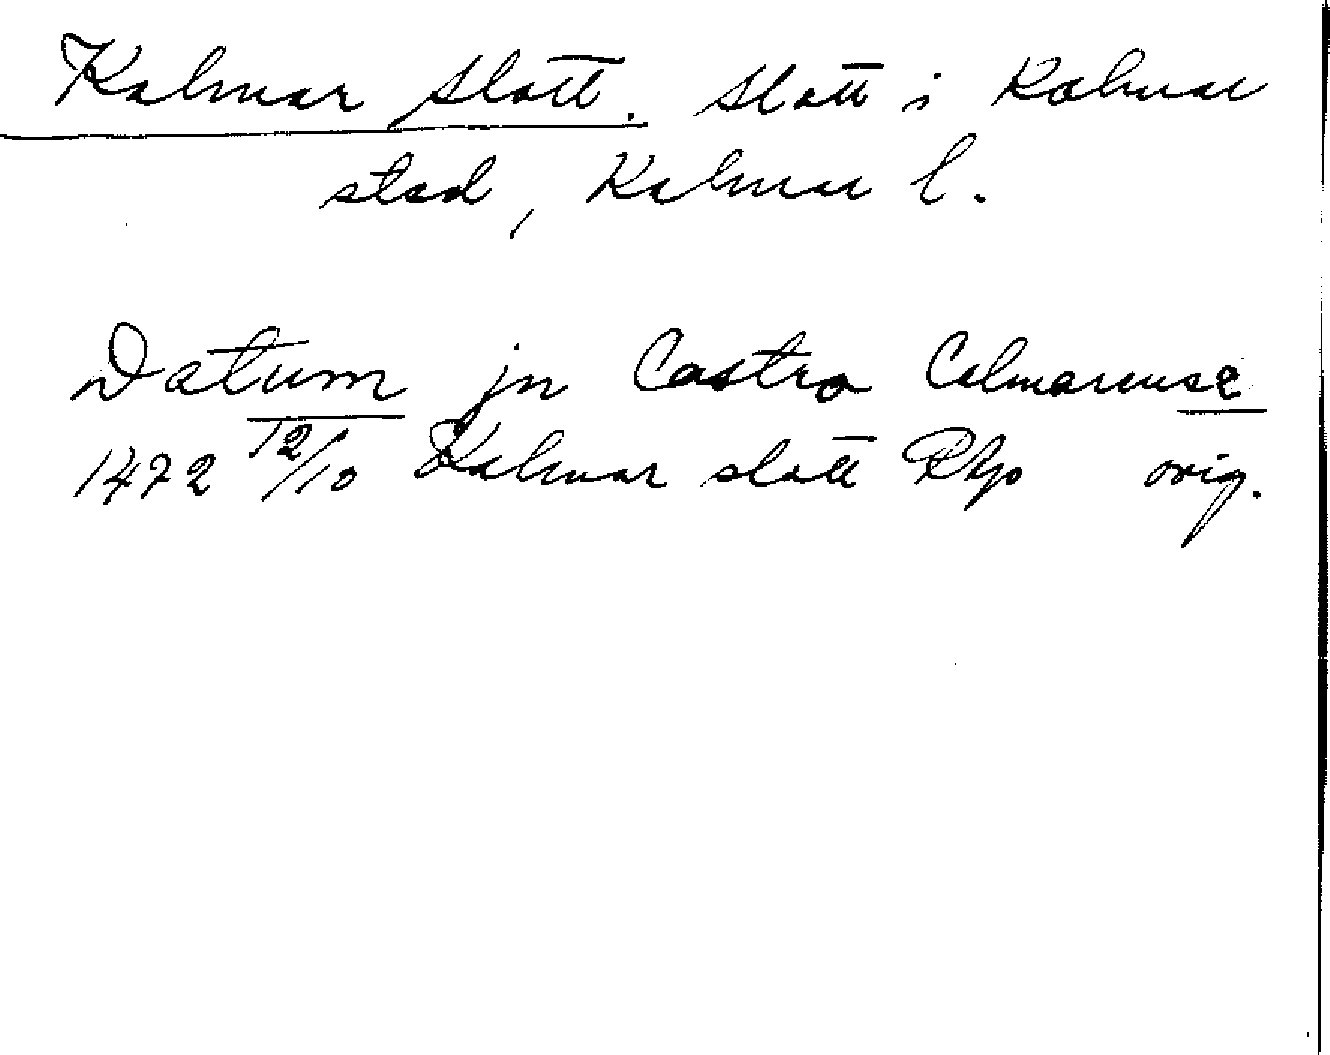 Kalmar slott. Slott i Kalmar
stad, Kalmar l.
Datum jn Castro Calmarense
1472 12/10 Kalmar slott Rkp orig.